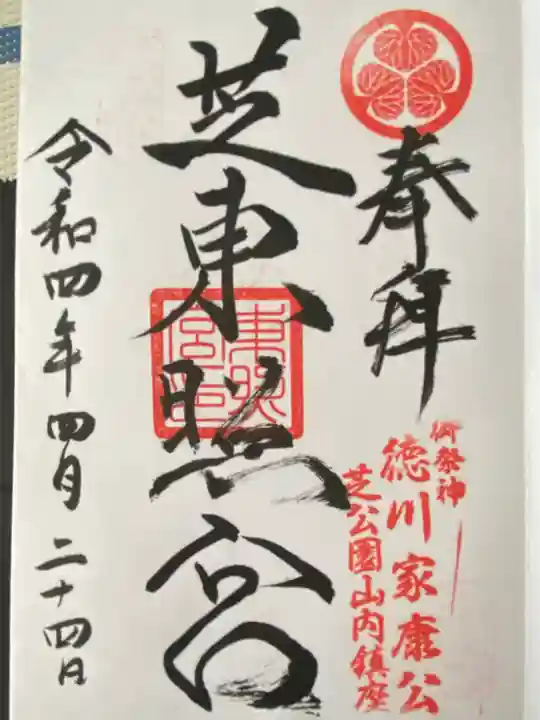 奉拝
御祭神
徳川家康公
芝公園山内鎮座
芝東照宮
東照宮印
令和四年四月二十四日